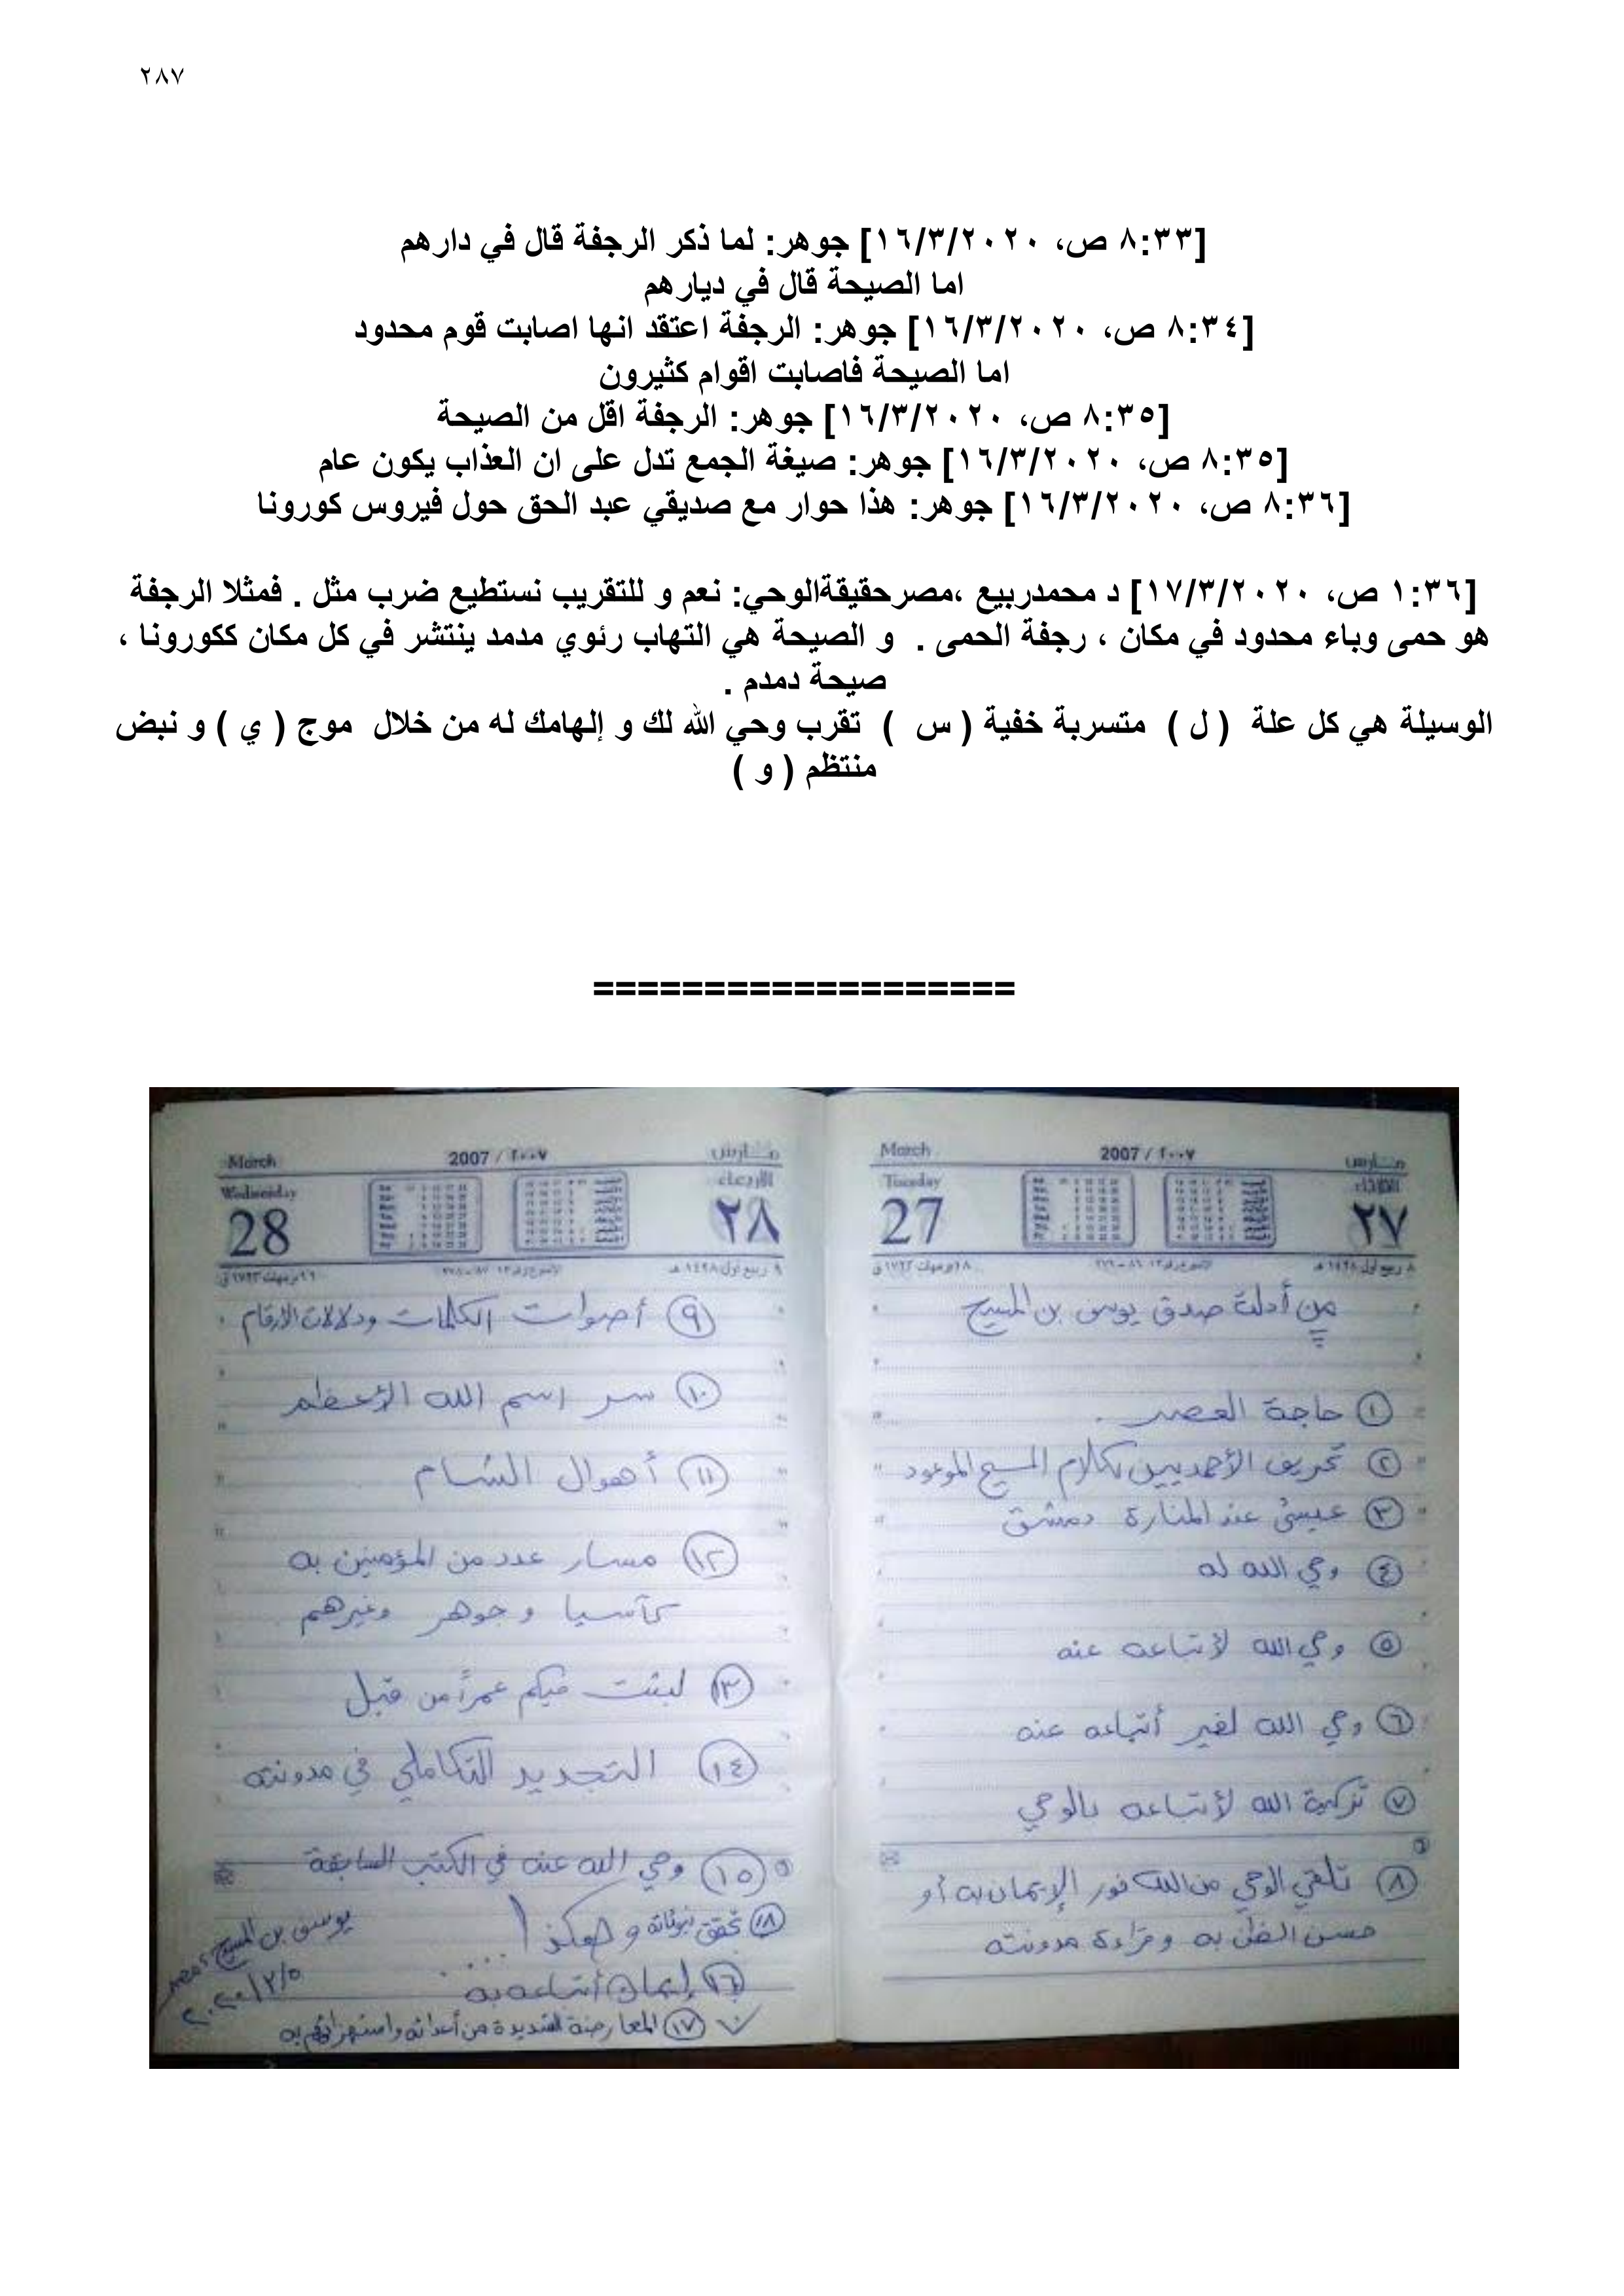 ٢٨٧
[٨:٣٣ ص، ١٦/٣/٢٠٢٠] جوهر: لما ذكر الرجفة قال في دارهم
اما الصيحة قال في ديارهم
[٨:٣٤ ص، ١٦/٣/٢٠٢٠] جوهر: الرجفة اعتقد انها اصابت قوم محدود
اما الصيحة فاصابت اقوام كثيرون
[٨:٣٥ ص، ١٦/٣/٢٠٢٠] جوهر: الرجفة اقل من الصيحة
[٨:٣٥ ص، ١٦/٣/٢٠٢٠] جوهر: صيغة الجمع تدل على ان العذاب يكون عام
[٨:٣٦ ص، ١٦/٣/٢٠٢٠] جوهر: هذا حوار مع صديقي عبد الحق حول فيروس كورونا
[١:٣٦ ص، ١٧/٣/٢٠٢٠] د محمدربيع ،مصرحقيقةالوحي: نعم و للتقريب نستطيع ضرب مثل . فمثلا الرجفة
هو حمى وباء محدود في مكان ، رجفة الحمى . و الصيحة هي التهاب رئوي مدمد ينتشر في كل مكان ككورونا ،
صيحة دمدم .
الوسيلة هي كل علة ( ل ) متسربة خفية ( س ) تقرب وحي الله لك و إلهامك له من خلال موج ( ي ) و نبض
منتظم ( و )
===================
March 2007 / ٢٠٠٧ مارس
Tuesday الثلاثاء
27 ٢٧
من أدلة صدق يوسف بن المسيح
١ حاجة العصر .
٢ تحريف الأحمديين لكلام المسيح الموعود
٣ عيسى عند المنارة دمشق
٤ وحي الله له
٥ وحي الله لأتباعه عنه
٦ وحي الله لغير أتباعه عنه
٧ تزكية الله لأتباعه بالوحي
٨ تلقي الوحي من الله فور الإيمان به أو
حسن الظن به وقراءة مدونته
March 2007 / ٢٠٠٧ مارس
Wednesday الأربعاء
28 ٢٨
٩ أصوات الكلمات ودلالات الأرقام
١٠ سر اسم الله الأعظم
١١ أهوال الشام
١٢ مسار عدد من المؤمنين به
كآسيا و جوهر وغيرهم
١٣ لبثت فيكم عمراً من قبل
١٤ التجديد التكاملي في مدونته
١٥ وحي الله عنه في الكتب السابقة
١٨ تحقق نبوءاته و هكذا ....
١٦ إيمان أتباعه به
١٧ المعارضة الشديدة من أعدائه واستهزائهم به
يوسف بن المسيح مصر